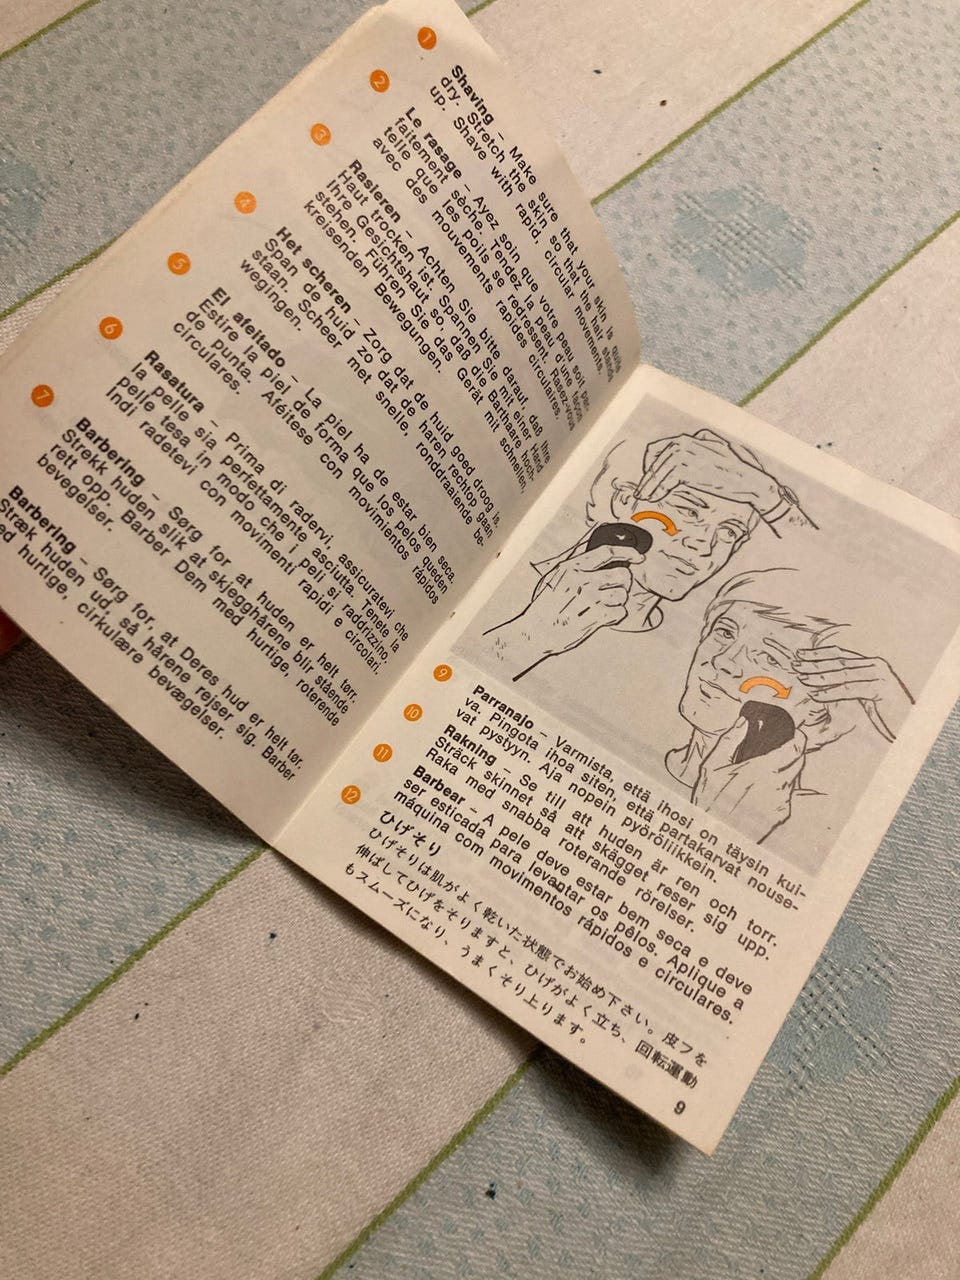 1
Shaving – Make sure that your skin is quite
dry. Stretch the skin so that the hair stands
up. Shave with rapid, circular movements.
2
Le rasage – Ayez soin que votre peau soit par-
faitement sèche. Tendez la peau d'une façon
telle que les poils se redressent. Rasez-vous
avec des mouvements rapides circulaires.
3
Rasieren – Achten Sie bitte darauf, daß Ihre
Haut trocken ist. Spannen Sie mit einer Hand
Ihre Gesichtshaut so, daß die Barthaare hoch-
stehen. Führen Sie das Gerät mit schnellen,
kreisenden Bewegungen.
4
Het scheren – Zorg dat de huid goed droog is.
Span de huid zo dat de haren rechtop gaan
staan. Scheer met snelle, ronddraaiende be-
wegingen.
5
El afeitado – La piel ha de estar bien seca.
Estire la piel de forma que los pelos queden
de punta. Aféitese con movimientos rápidos
circulares.
6
Rasatura – Prima di radervi, assicuratevi che
la pelle sia perfettamente asciutta. Tenete la
pelle tesa in modo che i peli si raddrizzino.
Indi radetevi con movimenti rapidi e circolari.
7
Barbering – Sørg for at huden er helt tørr.
Strekk huden slik at skjegghårene blir stående
rett opp. Barber Dem med hurtige, roterende
bevegelser.
Barbering – Sørg for, at Deres hud er helt tør.
Stræk huden ud, så hårene rejser sig. Barber
hurtige, cirkulære bevægelser.
9
Parranajo – Varmista, että ihosi on täysin kui-
va. Pingota ihoa siten, että partakarvat nouse-
vat pystyyn. Aja nopein pyöröliikkein.
10
Rakning – Se till att huden är ren och torr.
Sträck skinnet så att skägget reser sig upp.
Raka med snabba roterande rörelser.
11
Barbear – A pele deve estar bem seca e deve
ser esticada para levantar os pêlos. Aplique a
máquina com movimentos rápidos e circulares.
12
ひげそり
ひげそりは肌がよく乾いた状態でお始め下さい。皮フを
伸ばしてひげをそりますと、ひげがよく立ち、回転運動
もスムーズになり、うまくそり上ります。
9